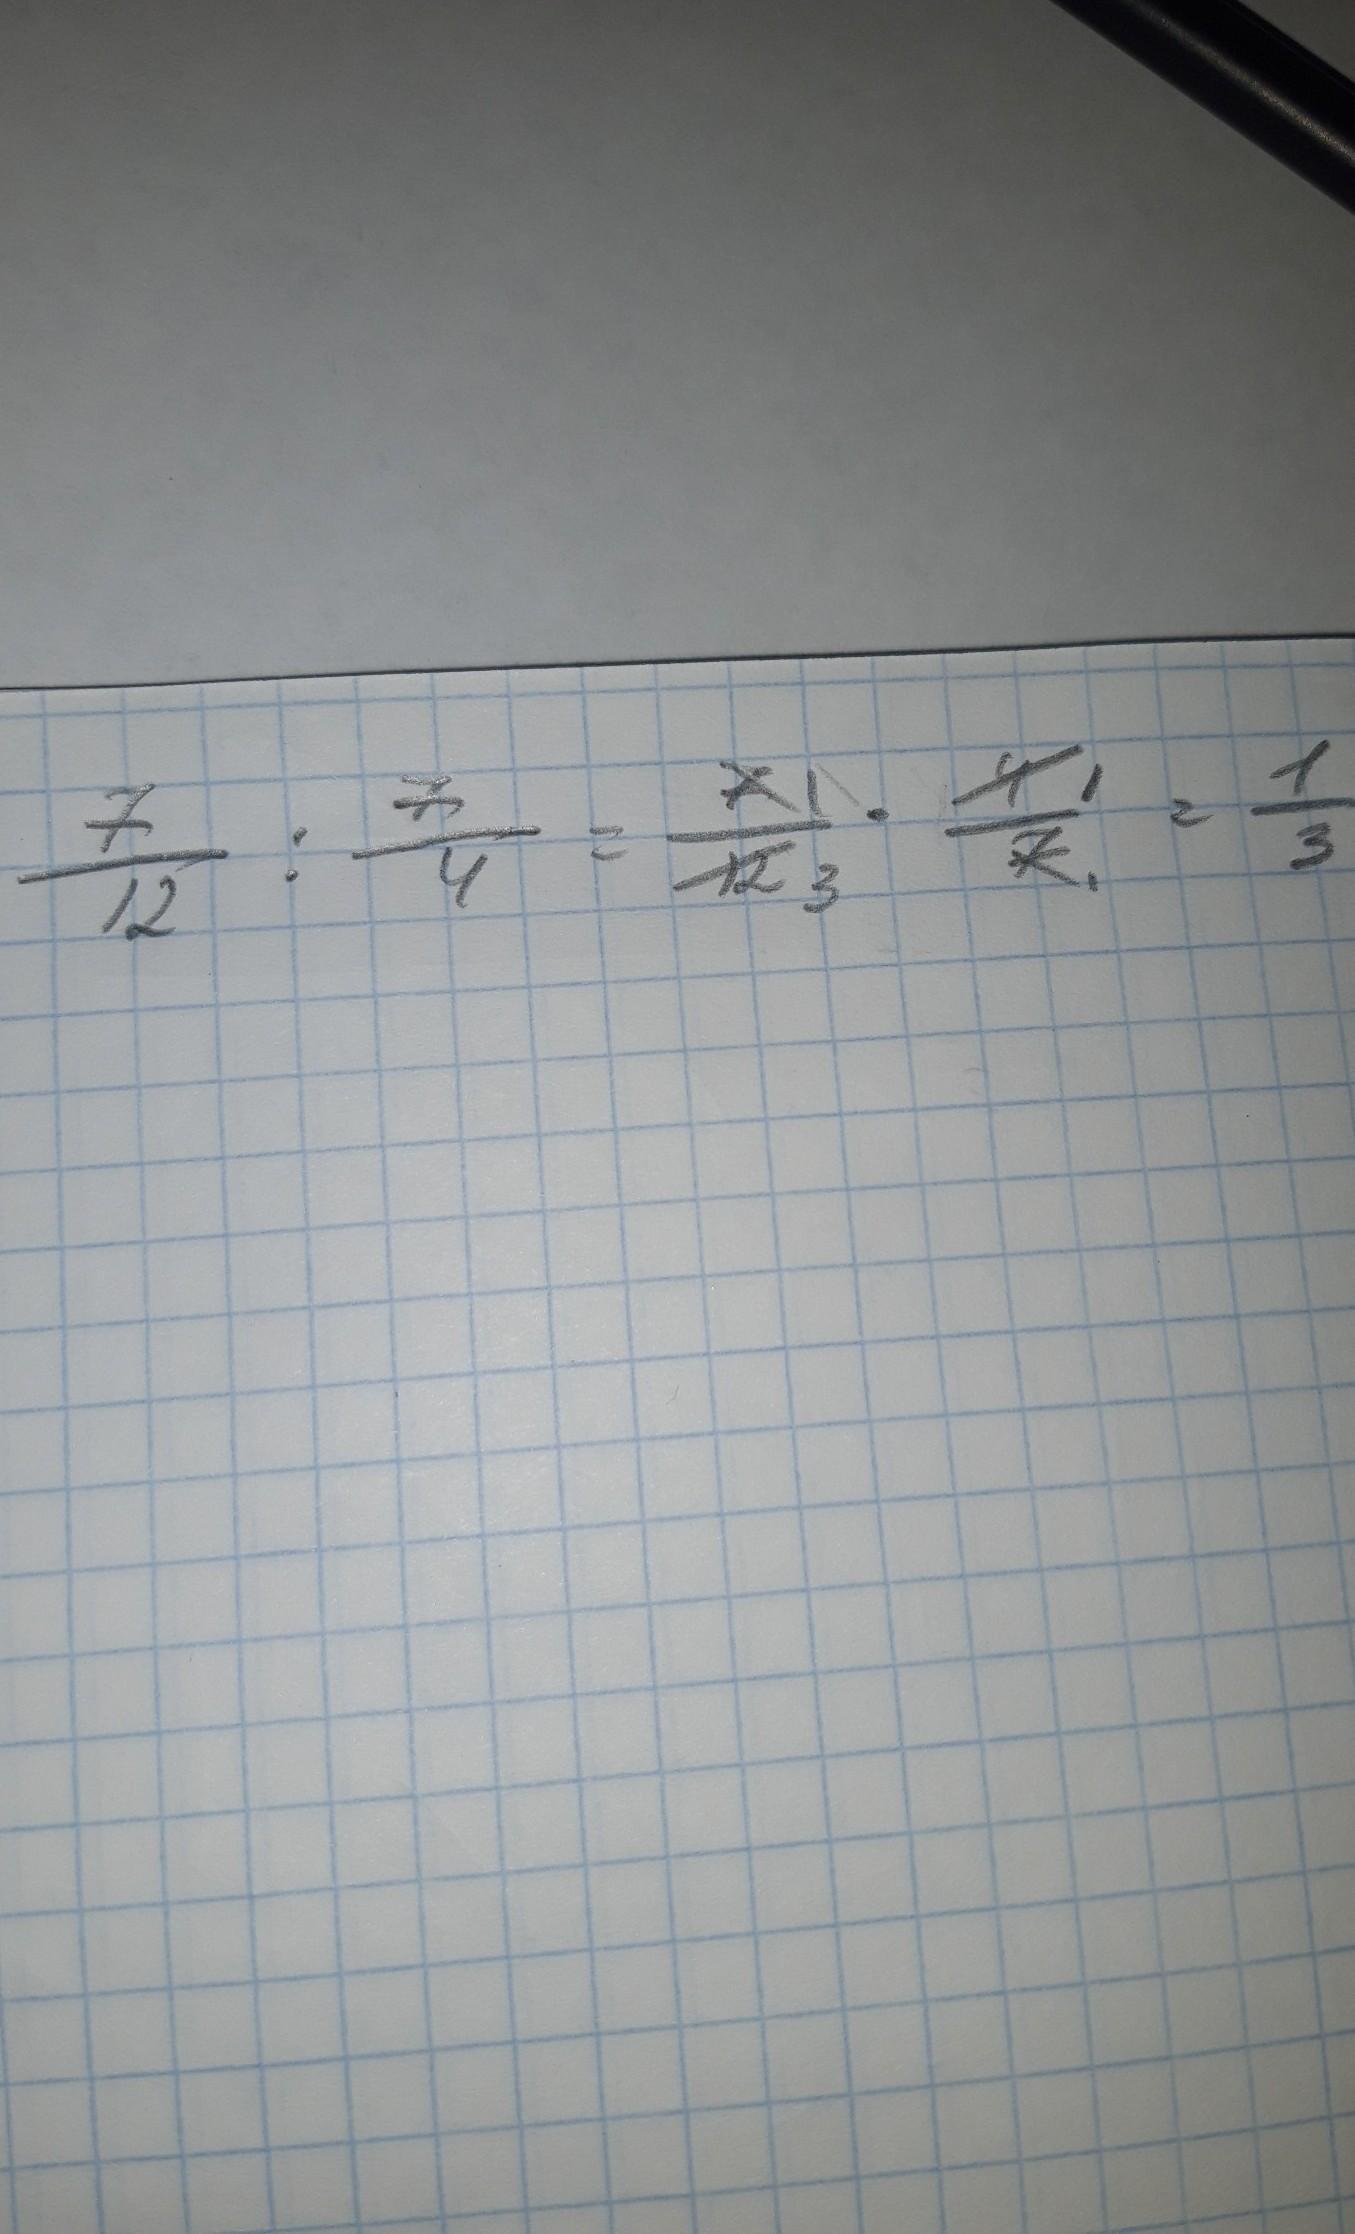 7/12 : 7/4 = 7 1/12 3 · 4 1/7 1 = 1/3